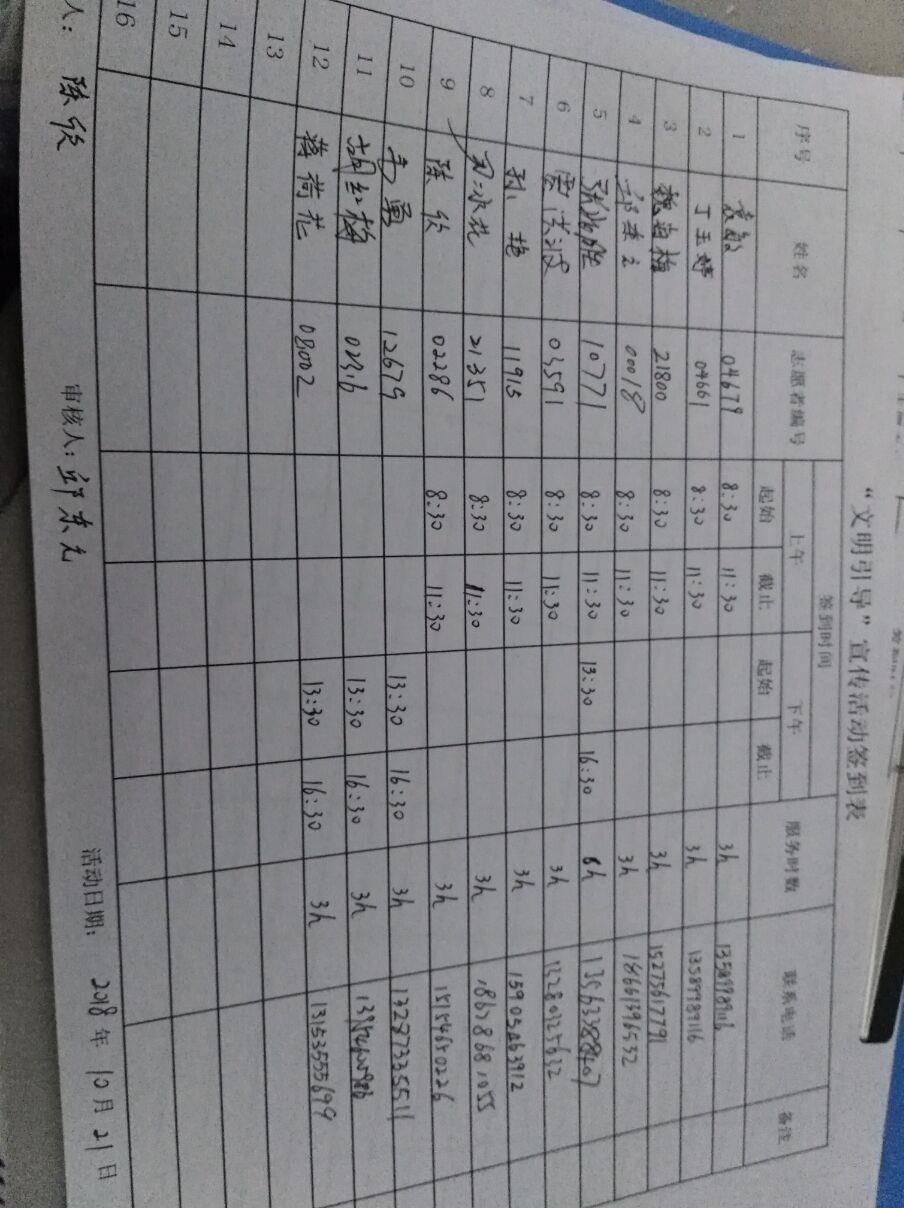 “文明引导”宣传活动签到表
序号 姓名 志愿者编号 签到时间 服务时数 联系电话 备注
上午 下午
起始 截止 起始 截止
1 袁敏 04679 8:30 11:30 3h
2 丁玉婷 04661 8:30 11:30 3h 13589989116
3 魏海梅 21800 8:30 11:30 3h 15275617791
4 邱东元 00018 8:30 11:30 3h 18661396532
5 10771 8:30 11:30 13:30 16:30 6h
6 03591 8:30 11:30 3h
7 孙艳 11915 8:30 11:30 3h 15905463912
8 21351 8:30 11:30 3h 18678681055
9 陈欣 02286 8:30 11:30 3h 15154650226
10 12679 13:30 16:30 3h 13287335511
11 胡红梅 13:30 16:30 3h
12 蒋荷花 08002 13:30 16:30 3h 13153555699
13
14
15
16
人: 陈欣 审核人: 邱东元 活动日期: 2018 年 10 月 21 日